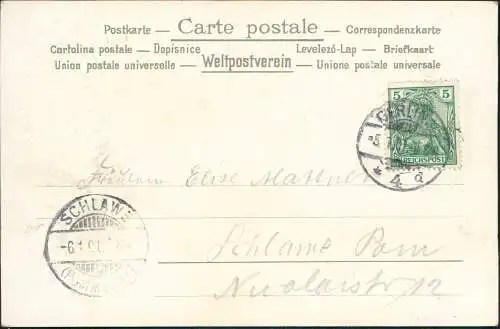 Postkarte — Carte postale — Correspondenzkarte
Cartolina postale — Dopisnice Levelező-Lap — Briefkaart
Union postale universelle — Weltpostverein — Unione postale universale
5 5
REICHSPOST
BERLIN
4 a
Fräulein Elise
SCHLAWE
Schlawe Pom
Nicolaistr 12